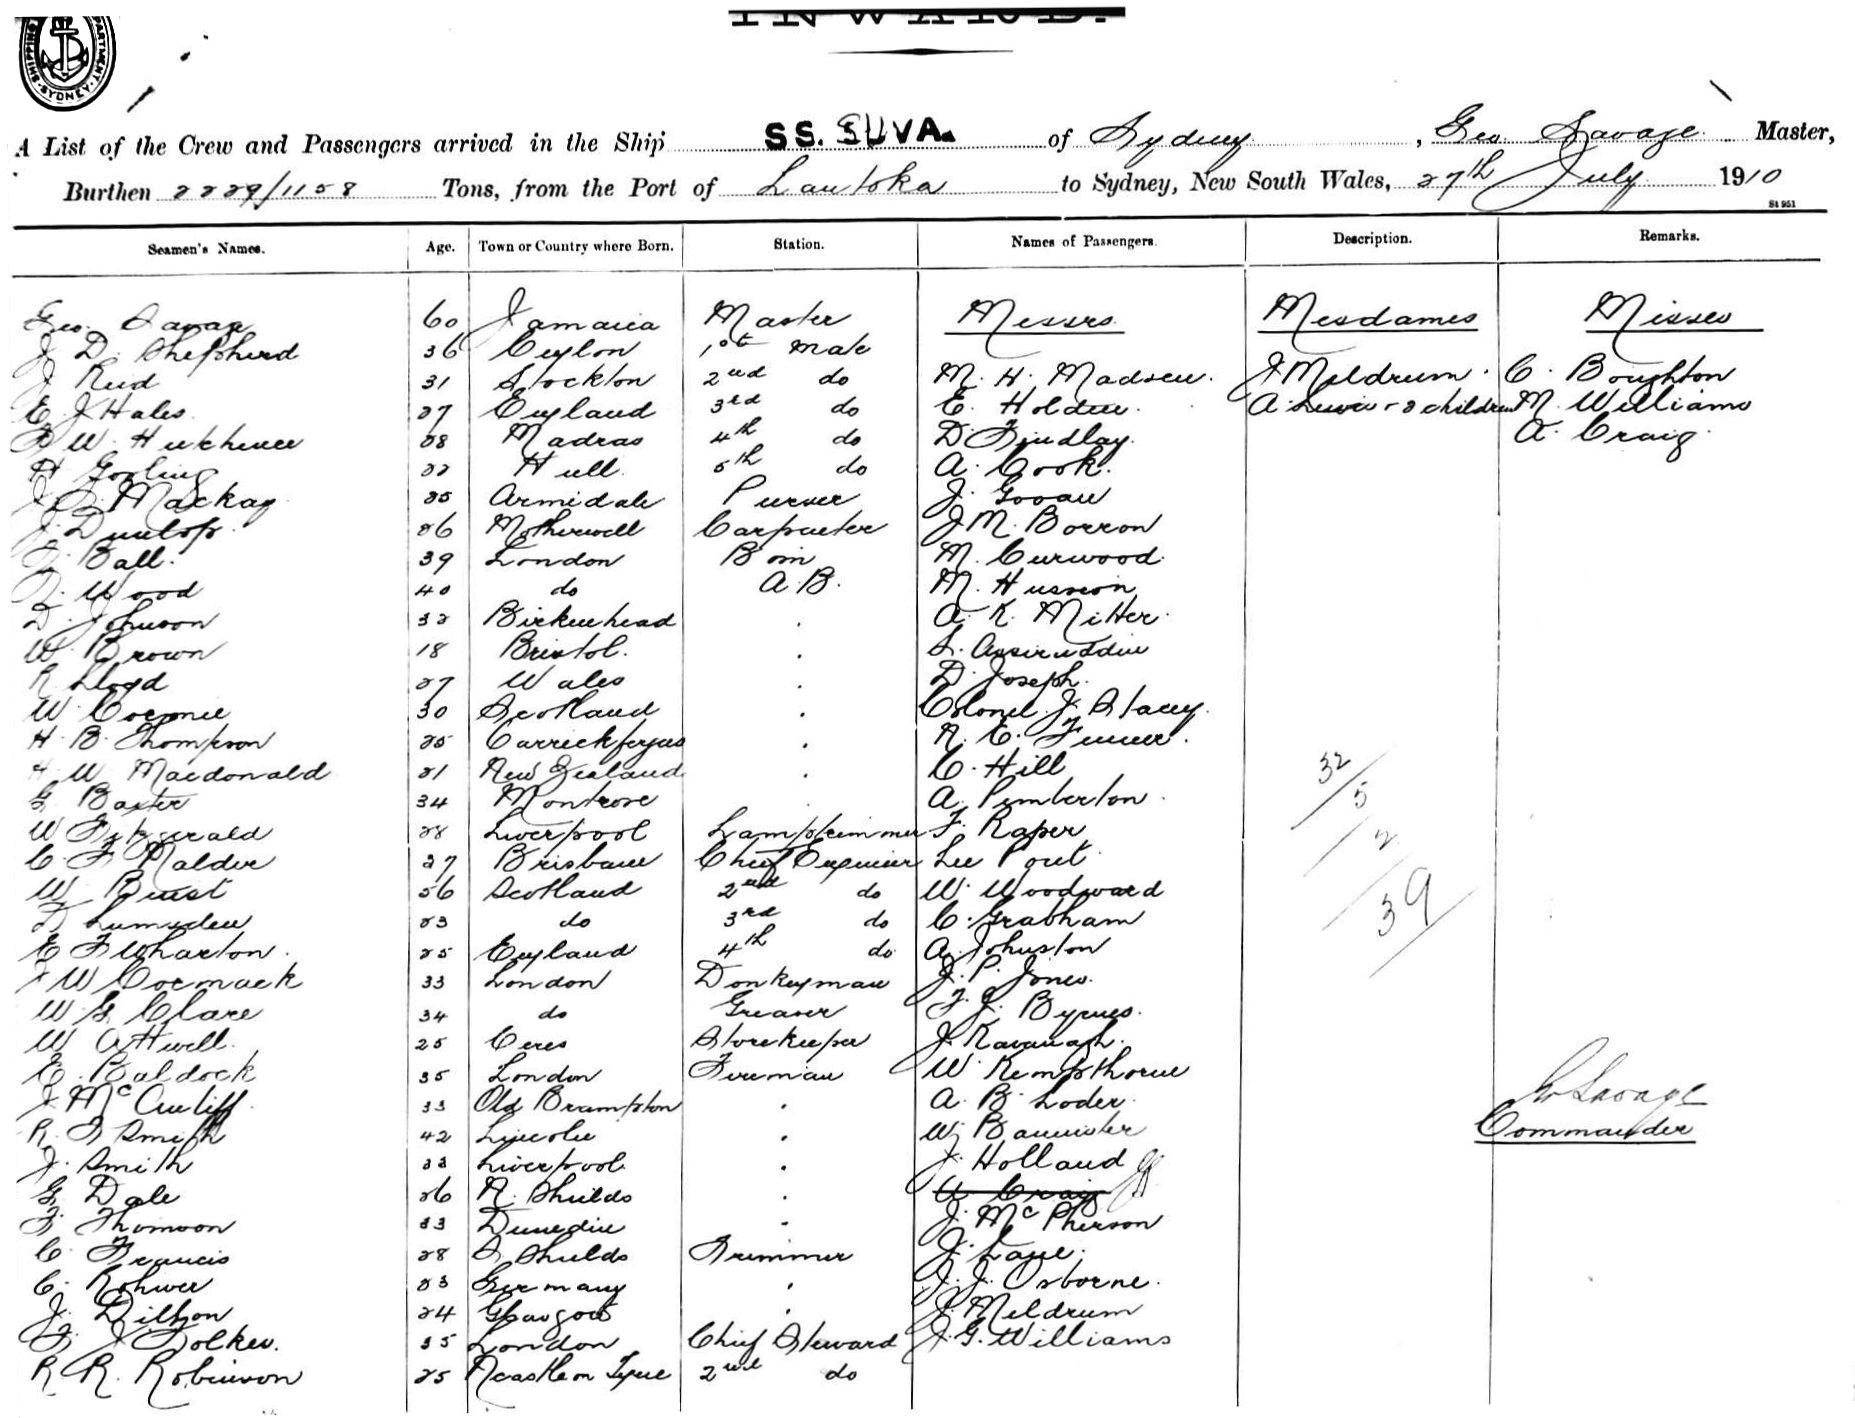 SHIPPING DEPARTMENT. SYDNEY.
INWARD.
A List of the Crew and Passengers arrived in the Ship SS. SUVA. of Sydney, Geo Savage Master,
Burthen 2229/1158 Tons, from the Port of Lautoka to Sydney, New South Wales, 27th July 1910
St 951
Seamen's Names. Age. Town or Country where Born. Station. Names of Passengers. Description. Remarks.
Geo. Savage 60 Jamaica Master Messrs Mesdames Misses
J. D. Shepherd 36 Ceylon 1st Mate
J Reid 31 Stockton 2nd do M. H. Madsen. J Meldrum. C. Boughton
E. J Hales. 27 England 3rd do E. Holden. A. Lewis - 2 children M. Williams
F W. Hutchence 28 Madras 4th do D. Findlay. A. Craig.
H Gosling 22 Hull. 5th do A. Cook.
Mackay 25 Armidale Purser J.
J. Dunlop. 26 Motherwell Carpenter J M. Borron
Ball. 39 London Bosn M. Curwood.
Wood 40 do A. B. M. Hussein
D. Johnson 32 Birkenhead . A. K. Mitter.
W. Brown 18 Bristol. . S.
R Lloyd 27 Wales . D. Joseph.
W. 30 Scotland . Colonel. J. Stacey.
H. B. Thompson 25 Carrickfergus . R. E.
H. W. Macdonald 21 New Zealand . C. Hill 32
G. Baxter 34 Montrose . A. Pemberton. 5
W Fitzgerald 28 Liverpool Lamptrimmer F. Raper 2
C. F Malder 27 Brisbane Chief Engineer Lee
W. Buist 56 Scotland 2nd do W. Woodward 39
Lumsden 23 do 3rd do C. Grabham
E F Wharton. 25 England 4th do A. Johnston
W Cormack 33 London Donkeyman J. P. Jones.
W. G. Clare 34 do Greaser F. J. Byrnes.
W Attwell. 25 Ceres Storekeeper J. Kavanagh.
E. Baldock 35 London Fireman W. Kempthorne
J McAuliff. 33 Old Brampton . A. B. Loder. G Savage
R. F Smith 42 Lincoln . W. Bannister Commander
J. Smith 22 Liverpool. . J. Holland
G. Dale 26 N. Shields . A Craig
F. Thomson 33 Dunedin . J. McPherson
C. Francis 28 S Shields Trimmer J. Lane.
C. Rohwer 23 Germany . J. J. Osborne.
J. Dillon 24 Glasgow . J. Meldrum
F. J Folkes. 35 London Chief Steward J. G. Williams
R R. Robinson 25 Ncastle on Tyne 2nd do